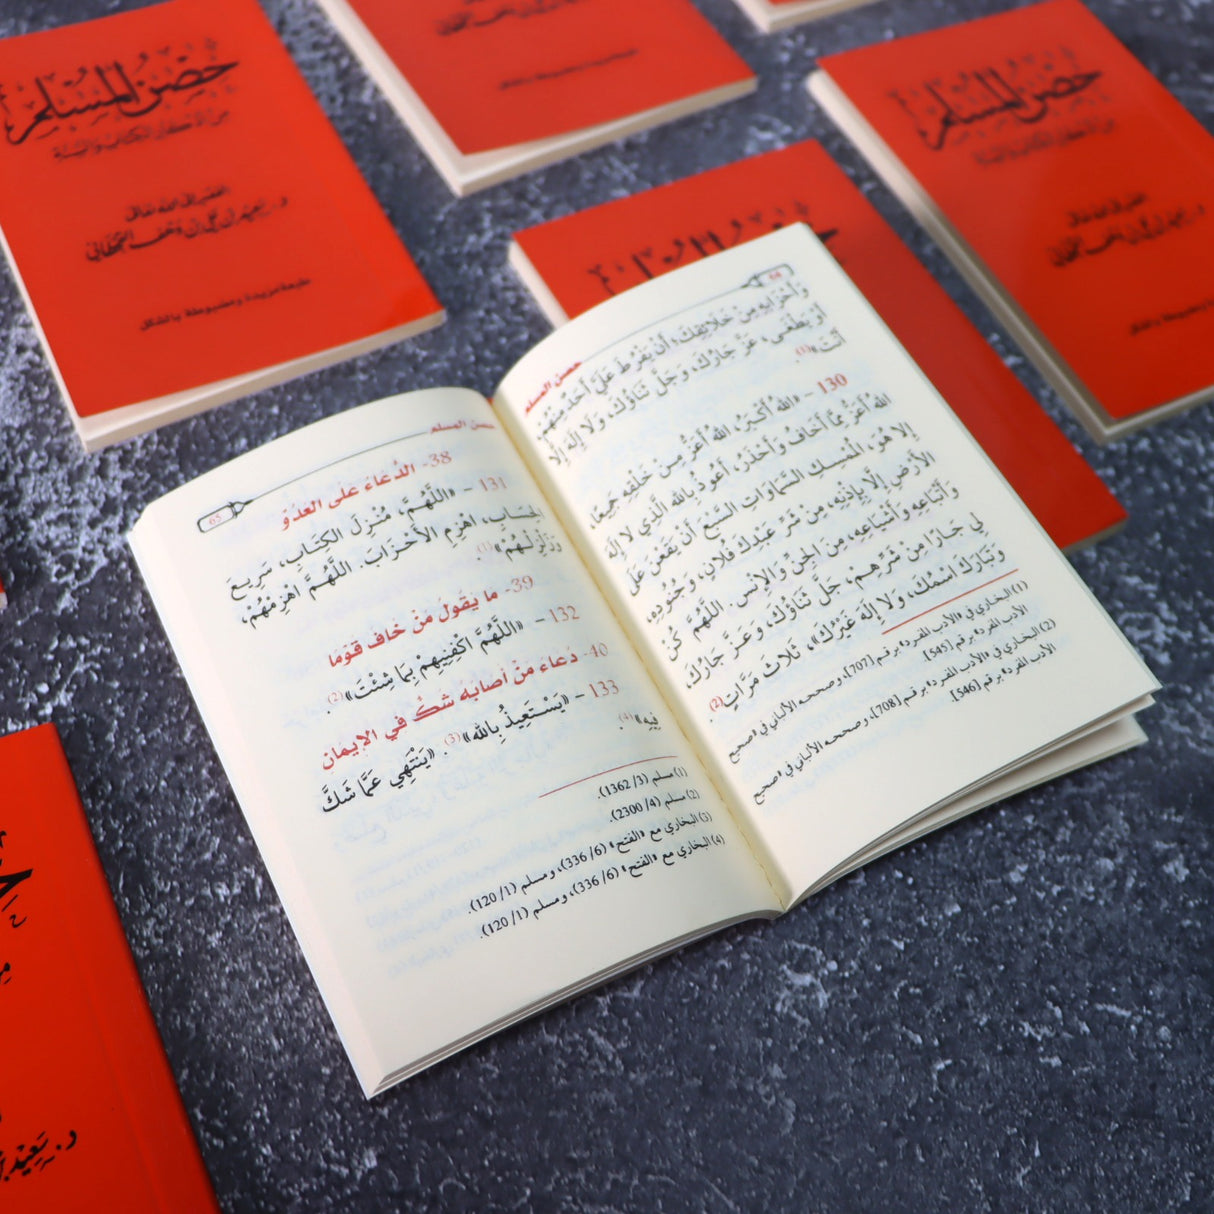 حصن المسلم
من أذكار الكتاب والسنة
الفقير إلى الله تعالى
د. سعيد بن علي بن وهف القحطاني
طبعة مزيدة ومضبوطة بالشكل
حصن المسلم
من أذكار الكتاب والسنة
الفقير إلى الله تعالى
64
حصن المسلم
وَأَحْزَابِهِ مِنْ خَلَائِقِكَ، أَنْ يَفْرُطَ عَلَيَّ أَحَدٌ مِنْهُمْ
أَوْ يَطْغَى، عَزَّ جَارُكَ، وَجَلَّ ثَنَاؤُكَ، وَلَا إِلَهَ إِلَّا
أَنْتَ»(1).
130 – «اللهُ أَكْبَرُ، اللهُ أَعَزُّ مِنْ خَلْقِهِ جَمِيعًا،
اللهُ أَعَزُّ مِمَّا أَخَافُ وَأَحْذَرُ، أَعُوذُ بِاللهِ الَّذِي لَا إِلَهَ
إِلَّا هُوَ، الْمُمْسِكِ السَّمَاوَاتِ السَّبْعِ أَنْ يَقَعْنَ عَلَى
الْأَرْضِ إِلَّا بِإِذْنِهِ، مِنْ شَرِّ عَبْدِكَ فُلَانٍ، وَجُنُودِهِ،
وَأَتْبَاعِهِ وَأَشْيَاعِهِ، مِنَ الْجِنِّ وَالْإِنْسِ. اللَّهُمَّ كُنْ
لِي جَارًا مِنْ شَرِّهِمْ، جَلَّ ثَنَاؤُكَ، وَعَزَّ جَارُكَ،
وَتَبَارَكَ اسْمُكَ، وَلَا إِلَهَ غَيْرُكَ»، ثَلَاثَ مَرَّاتٍ(2).
(1) البخاري في «الأدب المفرد» برقم [707]، وصححه الألباني في «صحيح
الأدب المفرد» برقم [545].
(2) البخاري في «الأدب المفرد» برقم [708]، وصححه الألباني في «صحيح
الأدب المفرد» برقم [546].
حصن المسلم
65
38- الدُّعَاءُ عَلَى العَدُوِّ
131 – «اللَّهُمَّ، مُنْزِلَ الكِتَابِ، سَرِيعَ
الحِسَابِ، اهْزِمِ الأَحْزَابَ. اللَّهُمَّ اهْزِمْهُمْ،
وَزَلْزِلْهُمْ»(1).
39- مَا يَقُولُ مَنْ خَافَ قَوْمًا
132 – «اللَّهُمَّ اكْفِنِيهِمْ بِمَا شِئْتَ»(2).
40- دُعَاءُ مَنْ أَصَابَهُ شَكٌّ فِي الإِيمَانِ
133 – «يَسْتَعِيذُ بِاللهِ»(3) «يَنْتَهِي عَمَّا شَكَّ
فِيهِ»(4).
(1) مسلم (3/ 1362).
(2) مسلم (4/ 2300).
(3) البخاري مع «الفتح» (6/ 336)، ومسلم (1/ 120).
(4) البخاري مع «الفتح» (6/ 336)، ومسلم (1/ 120).